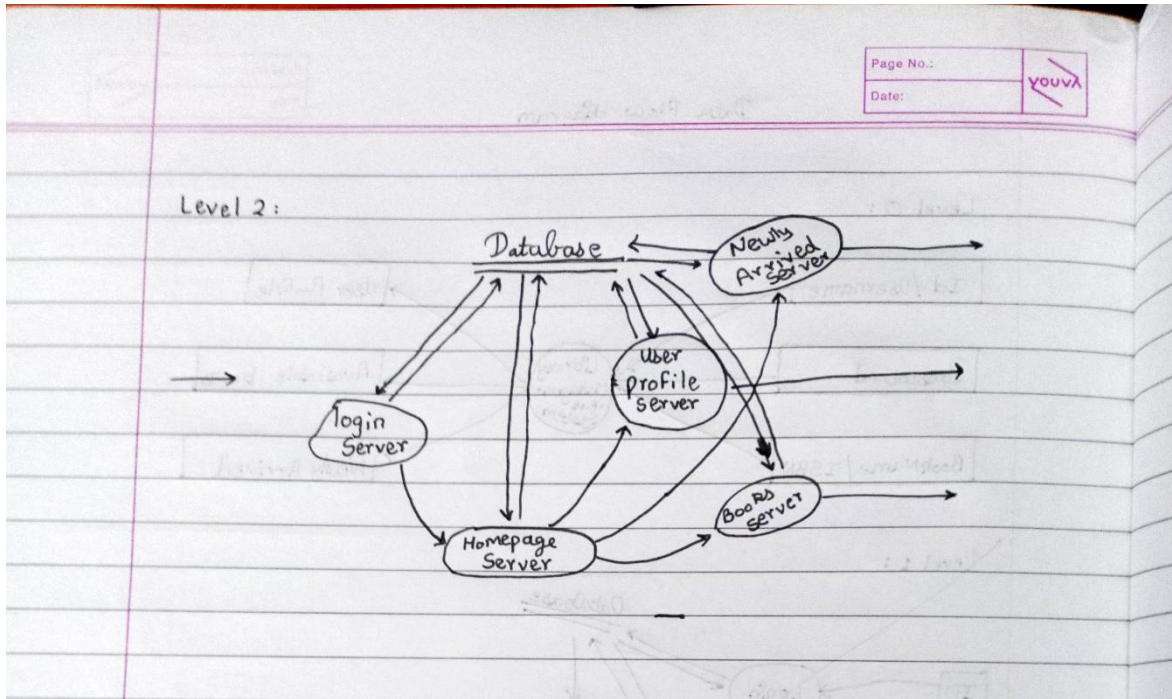 Page No.:
Date:
YOUVA
Level 2:
Database
Newly
Arrived
Server
User
profile
server
login
Server
Books
Server
Homepage
Server